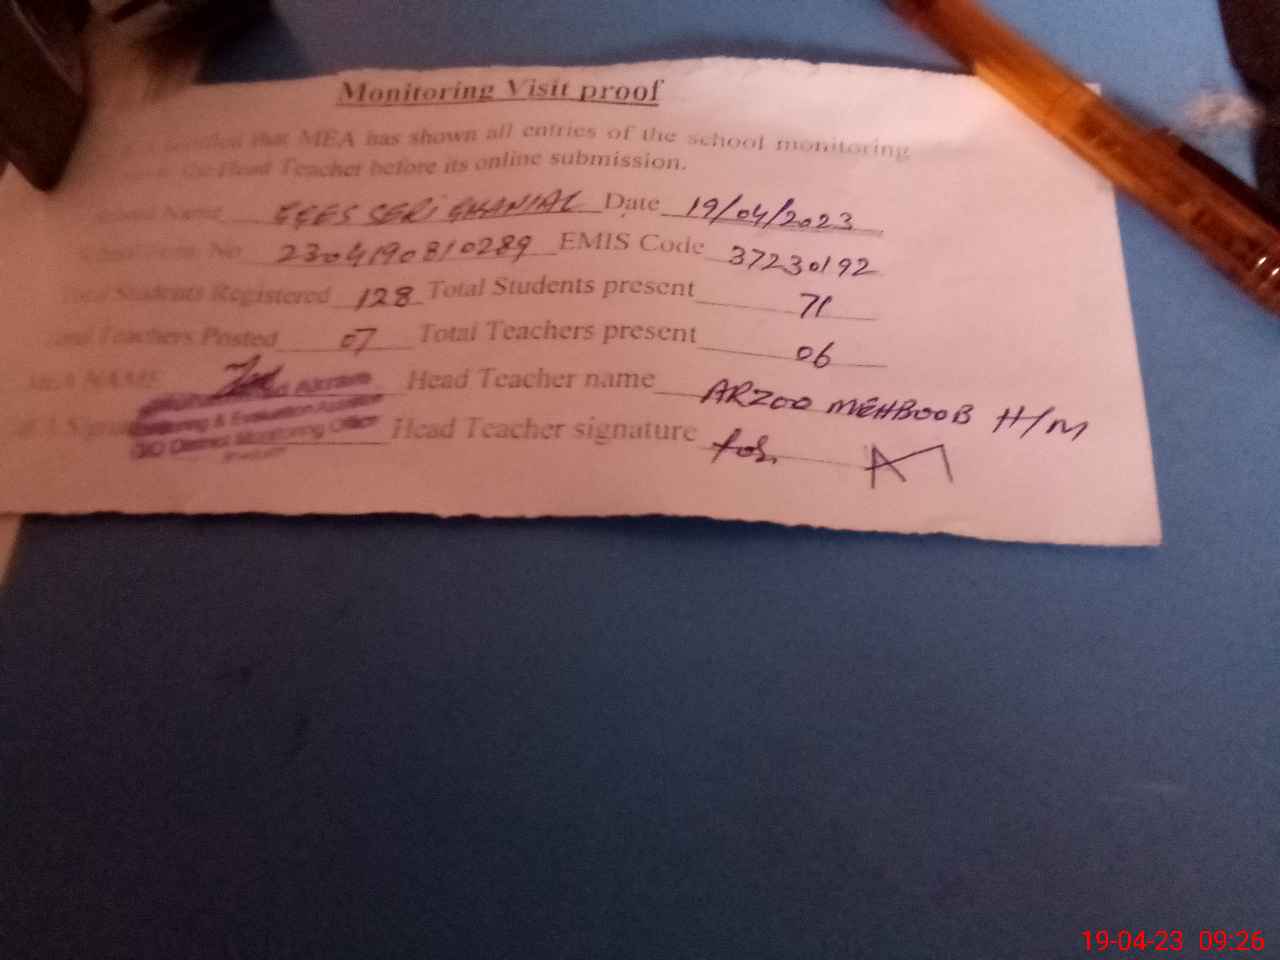 Monitoring Visit proof
that MEA has shown all entries of the school monitoring
the Head Teacher before its online submission.
Name GGES SERI GHANIAL Date 19/04/2023
No 2304190810289 EMIS Code 37230192
Total Students Registered 128 Total Students present 71
Total Teachers Posted 07 Total Teachers present 06
MEA NAME Head Teacher name ARZOO MEHBOOB H/M
Monitoring & Evaluation Assistant
O/O District Monitoring Officer Head Teacher signature
19-04-23 09:26